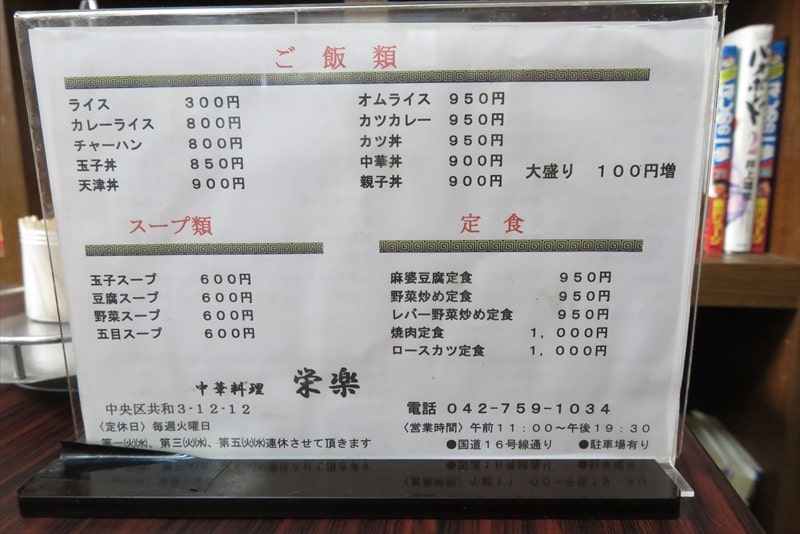 ご飯類
ライス 300円
カレーライス 800円
チャーハン 800円
玉子丼 850円
天津丼 900円
オムライス 950円
カツカレー 950円
カツ丼 950円
中華丼 900円
親子丼 900円
大盛り 100円増
スープ類
玉子スープ 600円
豆腐スープ 600円
野菜スープ 600円
五目スープ 600円
定食
麻婆豆腐定食 950円
野菜炒め定食 950円
レバー野菜炒め定食 950円
焼肉定食 1,000円
ロースカツ定食 1,000円
中華料理 栄楽
中央区共和3-12-12
〈定休日〉毎週火曜日
第一㈫㈬、第三㈫㈬、第五㈫㈬連休させて頂きます
電話 042-759-1034
〈営業時間〉午前11:00〜午後19:30
●国道16号線通り ●駐車場有り
2
井上雄彦